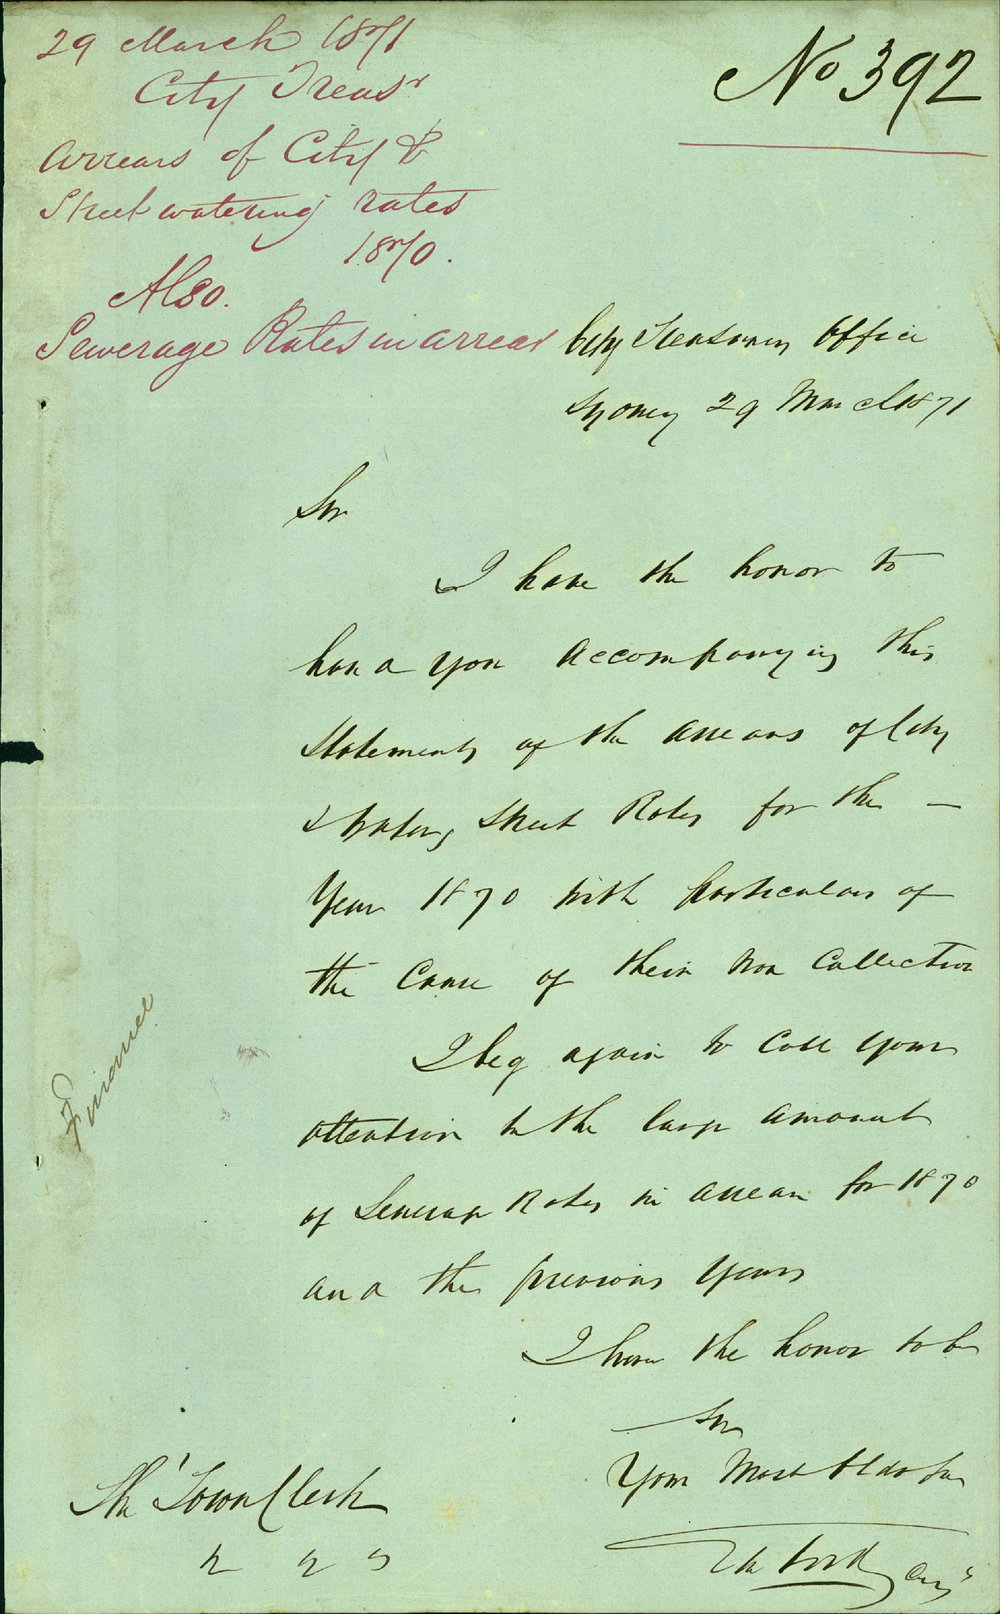 29 March 1871
City Treasr
Arrears of City &
Street watering rates
1870.
Also.
Sewerage Rates in arrear
No 392
City Treasurers Office
Sydney 29 March 1871
Sir
I have the honor to
hand you accompanying this
Statements of the arrears of City
& Watering Street Rates for the -
Year 1870 with particulars of
the Cause of their Non Collection
I beg again to Call your
attention to the large amount
of Sewerage Rates in arrear for 1870
and the previous years
I have the honor to be
Sir
Your Most Obdt
Finance
The Town Clerk